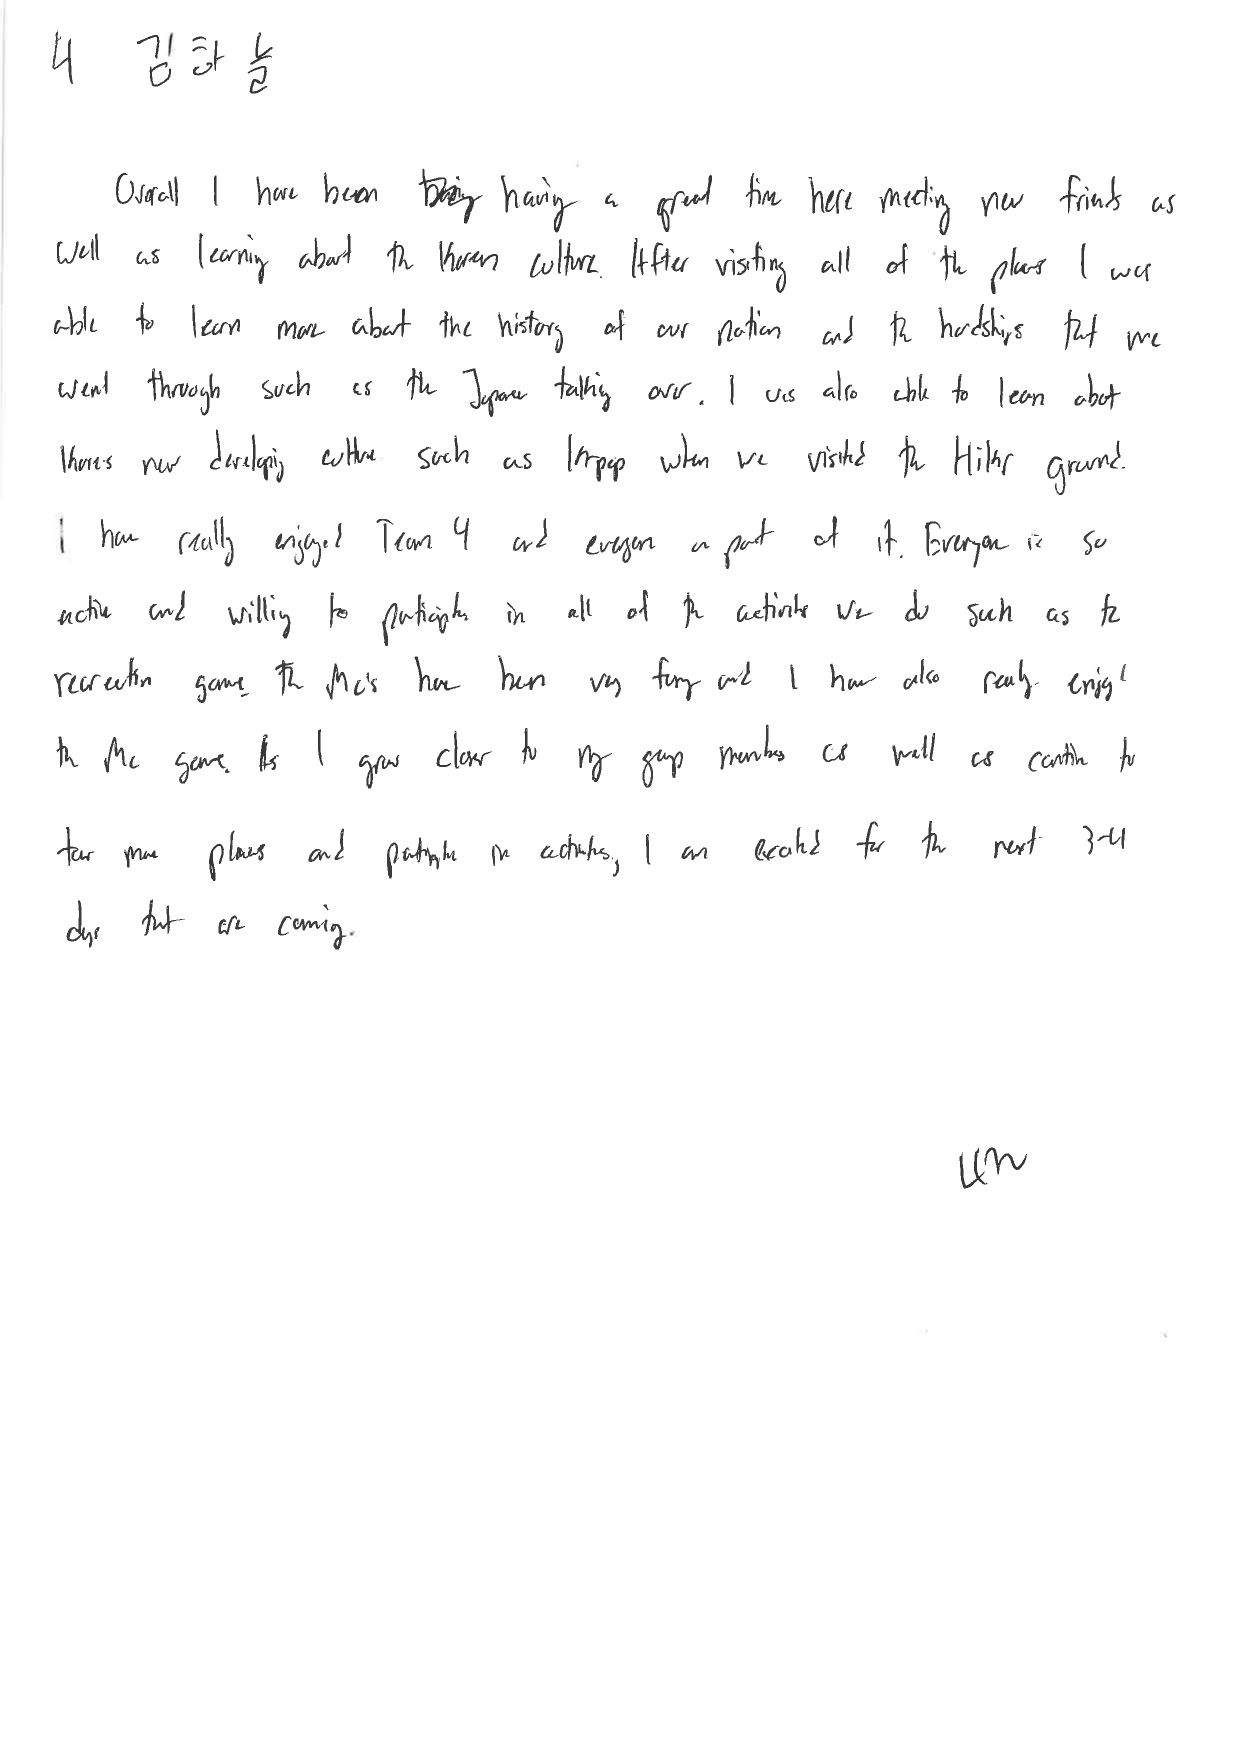 4 김하늘
Overall I have been having a great time here meeting new friends as
well as learning about the Korean culture. After visiting all of the places I was
able to learn more about the history of our nation and the hardships that we
went through such as the Japanese taking over. I was also able to learn about
Korea's new developing culture such as K-pop when we visited the HiKr ground.
I have really enjoyed Team 4 and everyone a part of it. Everyone is so
active and willing to participate in all of the activities we do such as the
recreation game. The Mc's have been very funny and I have also really enjoyed
the Mc game. As I grow closer to my group members as well as continue to
tour more places and participate in activities, I am excited for the next 3-4
days that are coming.